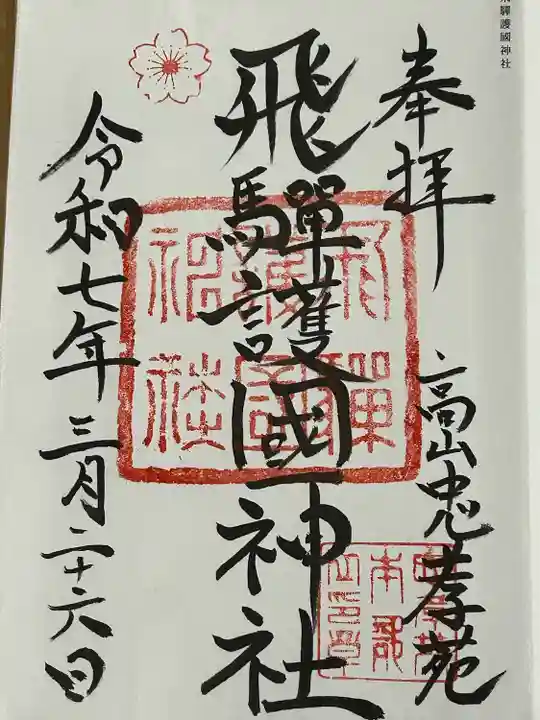 飛驒護國神社
奉拝
高山忠孝苑
飛驒護國神社
令和七年三月二十六日
飛驒護國神社